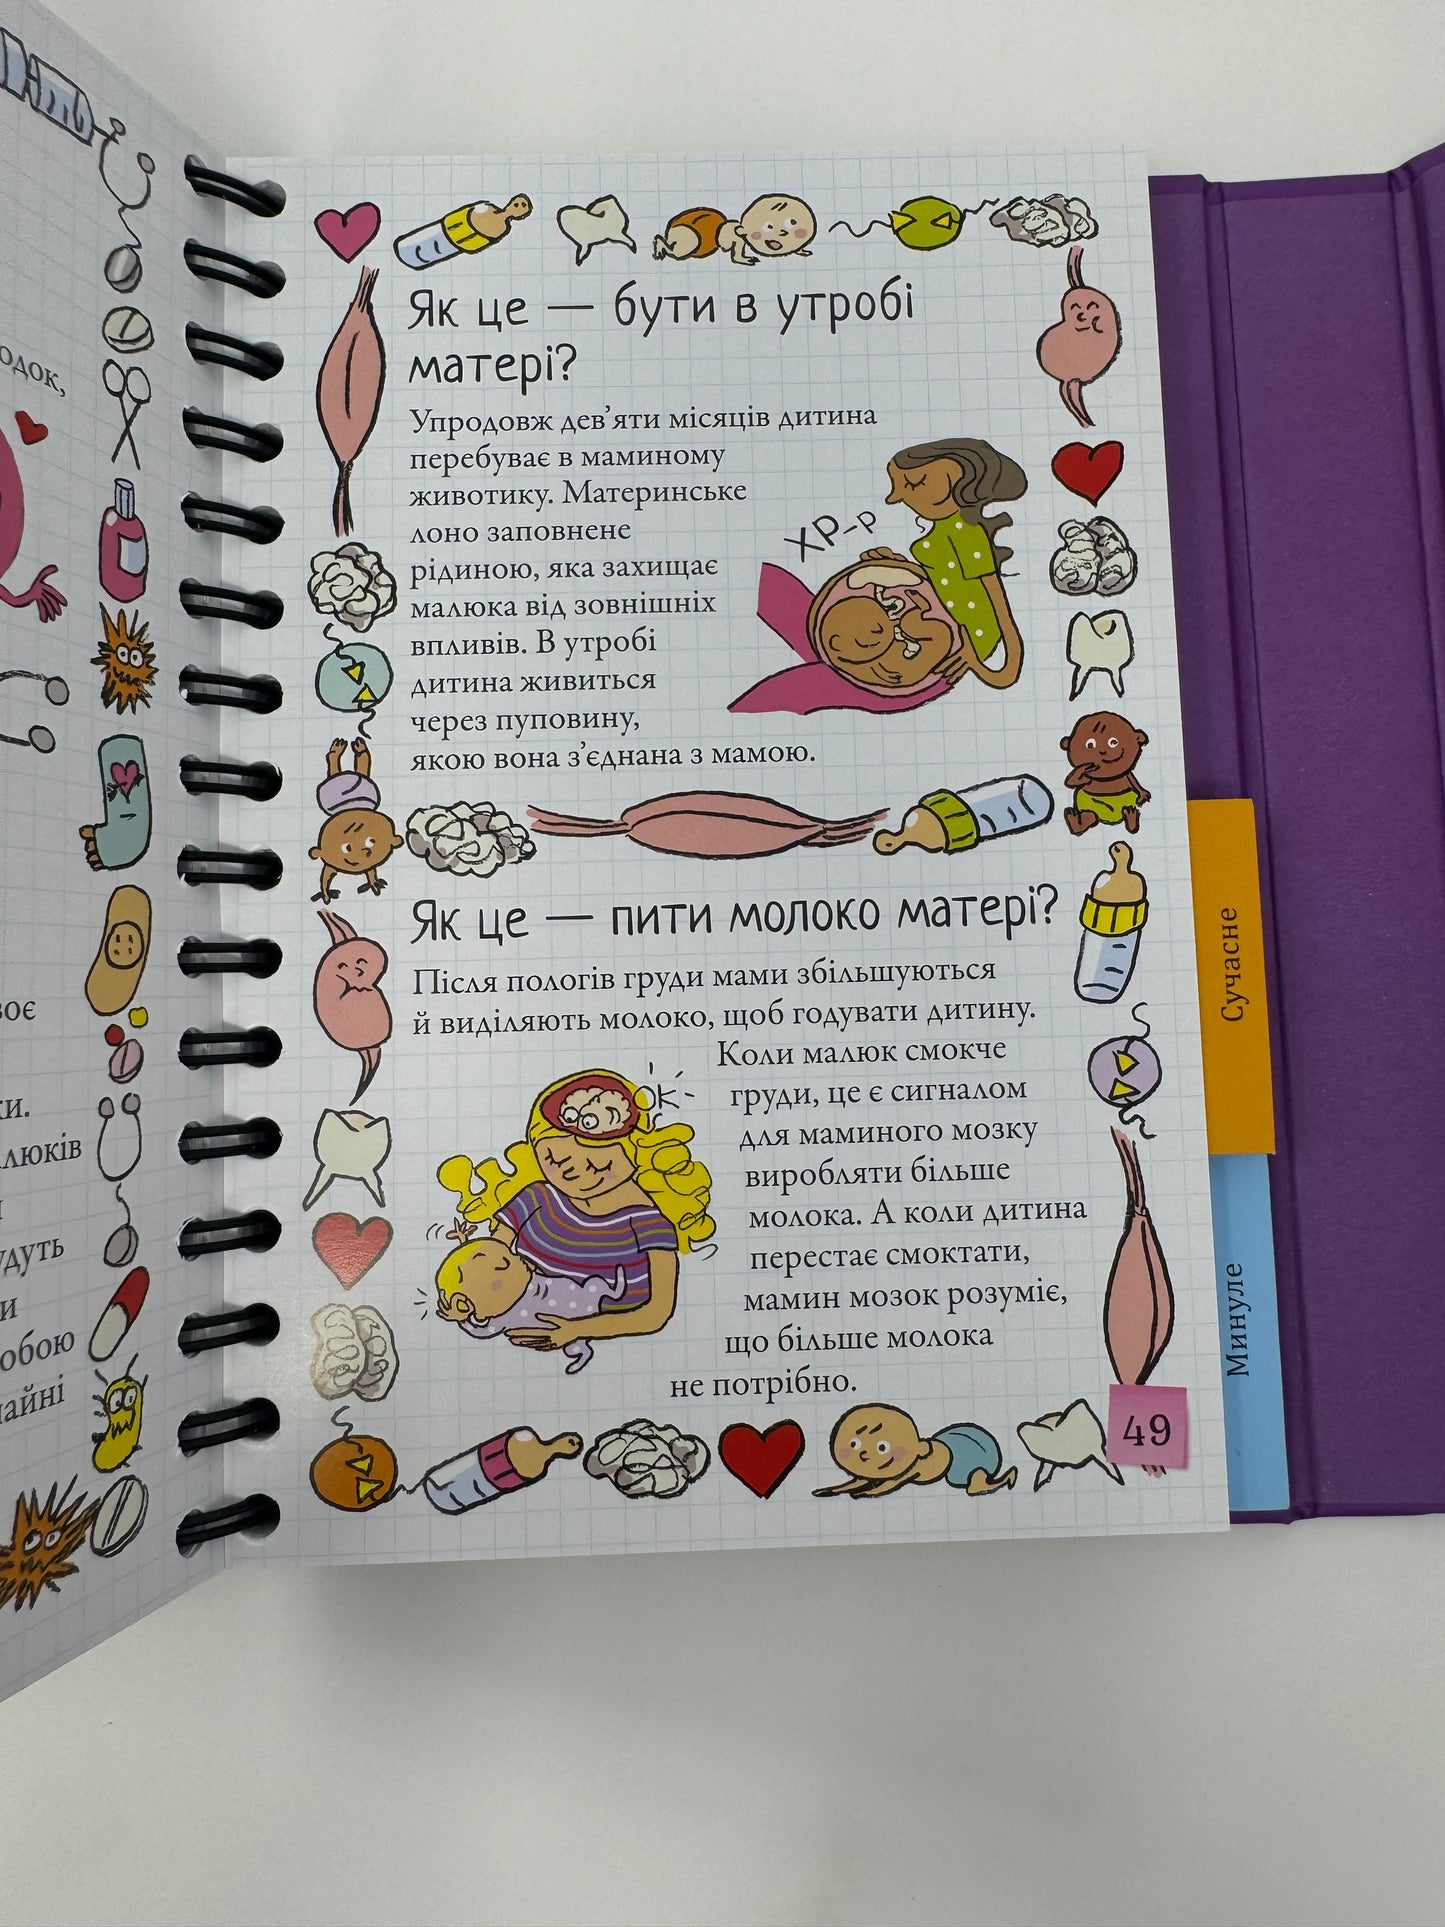 одок,
ки.
удуть
обою
Як це — бути в утробі
матері?
Упродовж дев’яти місяців дитина
перебуває в маминому
животику. Материнське
лоно заповнене
рідиною, яка захищає
малюка від зовнішніх
впливів. В утробі
дитина живиться
через пуповину,
якою вона з’єднана з мамою.
ХР-Р
Як це — пити молоко матері?
Після пологів груди мами збільшуються
й виділяють молоко, щоб годувати дитину.
Коли малюк смокче
груди, це є сигналом
для маминого мозку
виробляти більше
молока. А коли дитина
перестає смоктати,
мамин мозок розуміє,
що більше молока
не потрібно.
ОК
49
Сучасне
Минуле